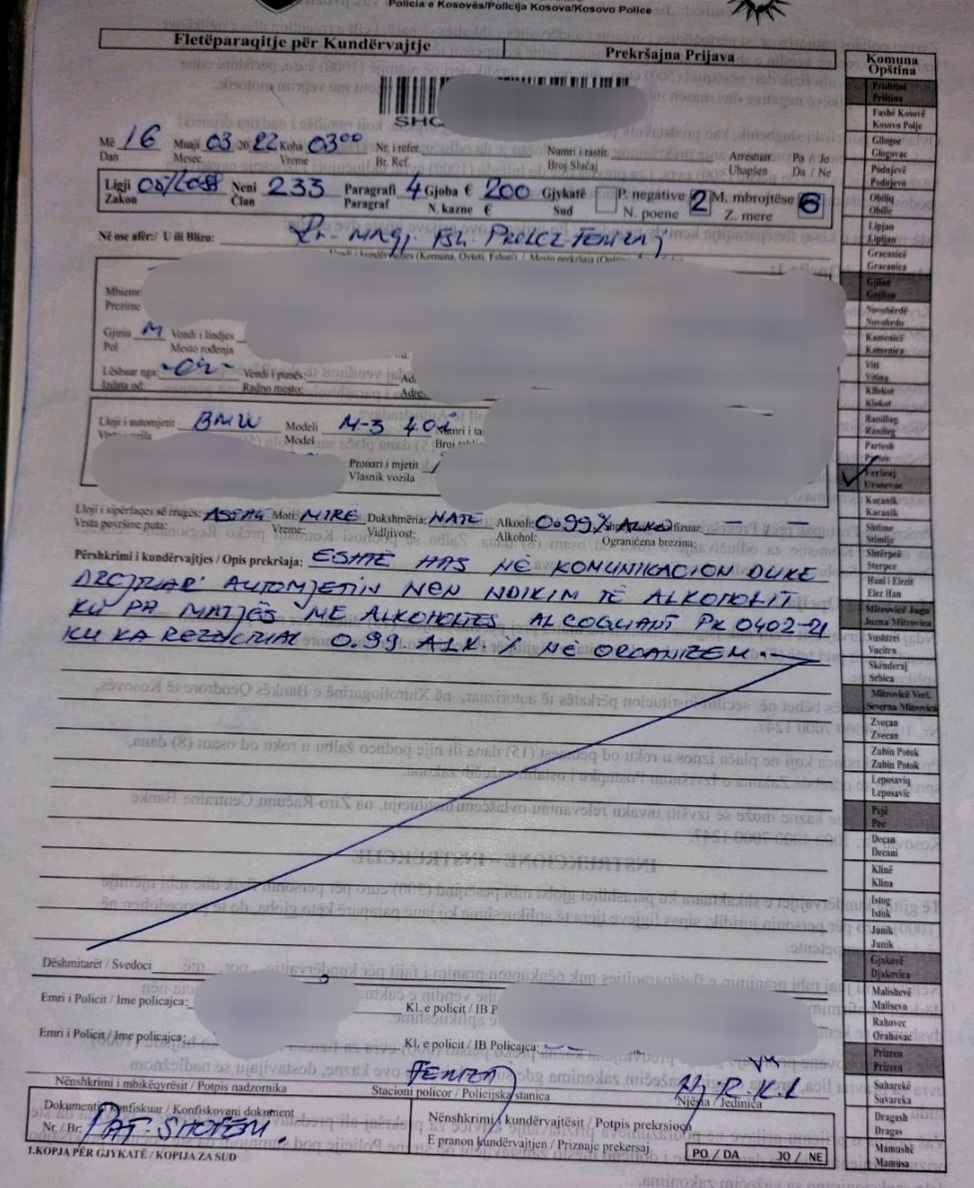 Policia e Kosovës/Policija Kosova/Kosovo Police
Fletëparaqitje për Kundërvajtje Prekršajna Prijava
Më 16 Muaji 03 20 22 Koha 03⁰⁰ Nr i refer. Numri i rastit Arrestuar Po / Jo
Dan Mesec Vreme Br. Ref. Broj Slučaj Uhapšen Da / Ne
Ligji 05/L088 Neni 233 Paragrafi 4 Gjoba € 200 Gjykatë P. negative 2 M. mbrojtëse 6
Zakon Član Paragraf N. kazne € Sud N. poene Z. mere
Në ose afër:/ U ili Blizu: Rr. Magj. Fsh. Prelez-Ferizaj
Mbiemr
Prezime
Gjinia M Vendi i lindjes
Pol Mesto rođenja
Lëshuar nga: Vendi i punës: Ad.
Izdata od: Radno mesto: Adre
Lloji i automjetit BMW Modeli M-3 40i
Model Broj
Pronari i mjetit
Vlasnik vozila
Lloji i sipërfaqes së rrugës: ASFAL Moti: MIRE Dukshmëria: NATE Alkooli: 0.99 % ALKO
Vrsta površine puta: Vreme: Vidljivost: Alkohol: Ograničena brzina:
Përshkrimi i kundërvajtjes / Opis prekršaja: ËSHTË HAS NË KOMUNIKACION DUKE
DREJTUAR AUTOMJETIN NEN NDIKIM TË ALKOHOLIT
KU PA MATJES ME ALKOHOLTES ALCOQUANT PK 0402-21
KU KA REZULTUAR 0.99 ALK. % NË ORGANIZEM.
Dëshmitarët / Svedoci
Emri i Policit / Ime policajca: Kl. e policit / IB P
Emri i Policit / Ime policajca: Kl. e policit / IB Policajca:
FERIZAJ Nj R.K.L
Nënshkrimi i mbikëqyrësit / Potpis nadzornika Stacioni policor / Policijska stanica Njësia / Jedinica
Dokumenti konfiskuar / Konfiskovani dokument Nënshkrimi i kundërvajtësit / Potpis prekrsioca
Nr. / Br. PAT. SHOFERI. E pranon kundërvajtjen / Priznaje prekersaj PO / DA JO / NE
1.KOPJA PËR GJYKATË / KOPIJA ZA SUD
Komuna
Opština
Prishtinë
Priština
Fushë Kosovë
Kosovo Polje
Gllogoc
Glogovac
Podujevë
Podujevo
Obiliq
Obilic
Lipjan
Lipljan
Graçanicë
Gracanica
Gjilan
Gnjilan
Novobërdë
Novobrdo
Kamenicë
Kamenica
Viti
Vitina
Kllokot
Klokot
Ranillug
Ranilug
Partesh
Partes
Ferizaj
Urosevac
Kacanik
Kacanik
Shtime
Stimlje
Shtërpcë
Sterpce
Hani i Elezit
Elez Han
Mitrovicë Jugu
Juzna Mitrovica
Vushtrri
Vucitrn
Skënderaj
Srbica
Mitrovicë Veri.
Severna Mitrovica
Zveçan
Zvecan
Zubin Potok
Zubin Potok
Leposaviq
Leposavic
Pejë
Peć
Deçan
Decani
Klinë
Klina
Istog
Istok
Junik
Junik
Gjakovë
Djakovica
Malishevë
Malisevo
Rahovec
Orahovac
Prizren
Prizren
Suharekë
Suvareka
Dragash
Dragas
Mamushë
Mamusa